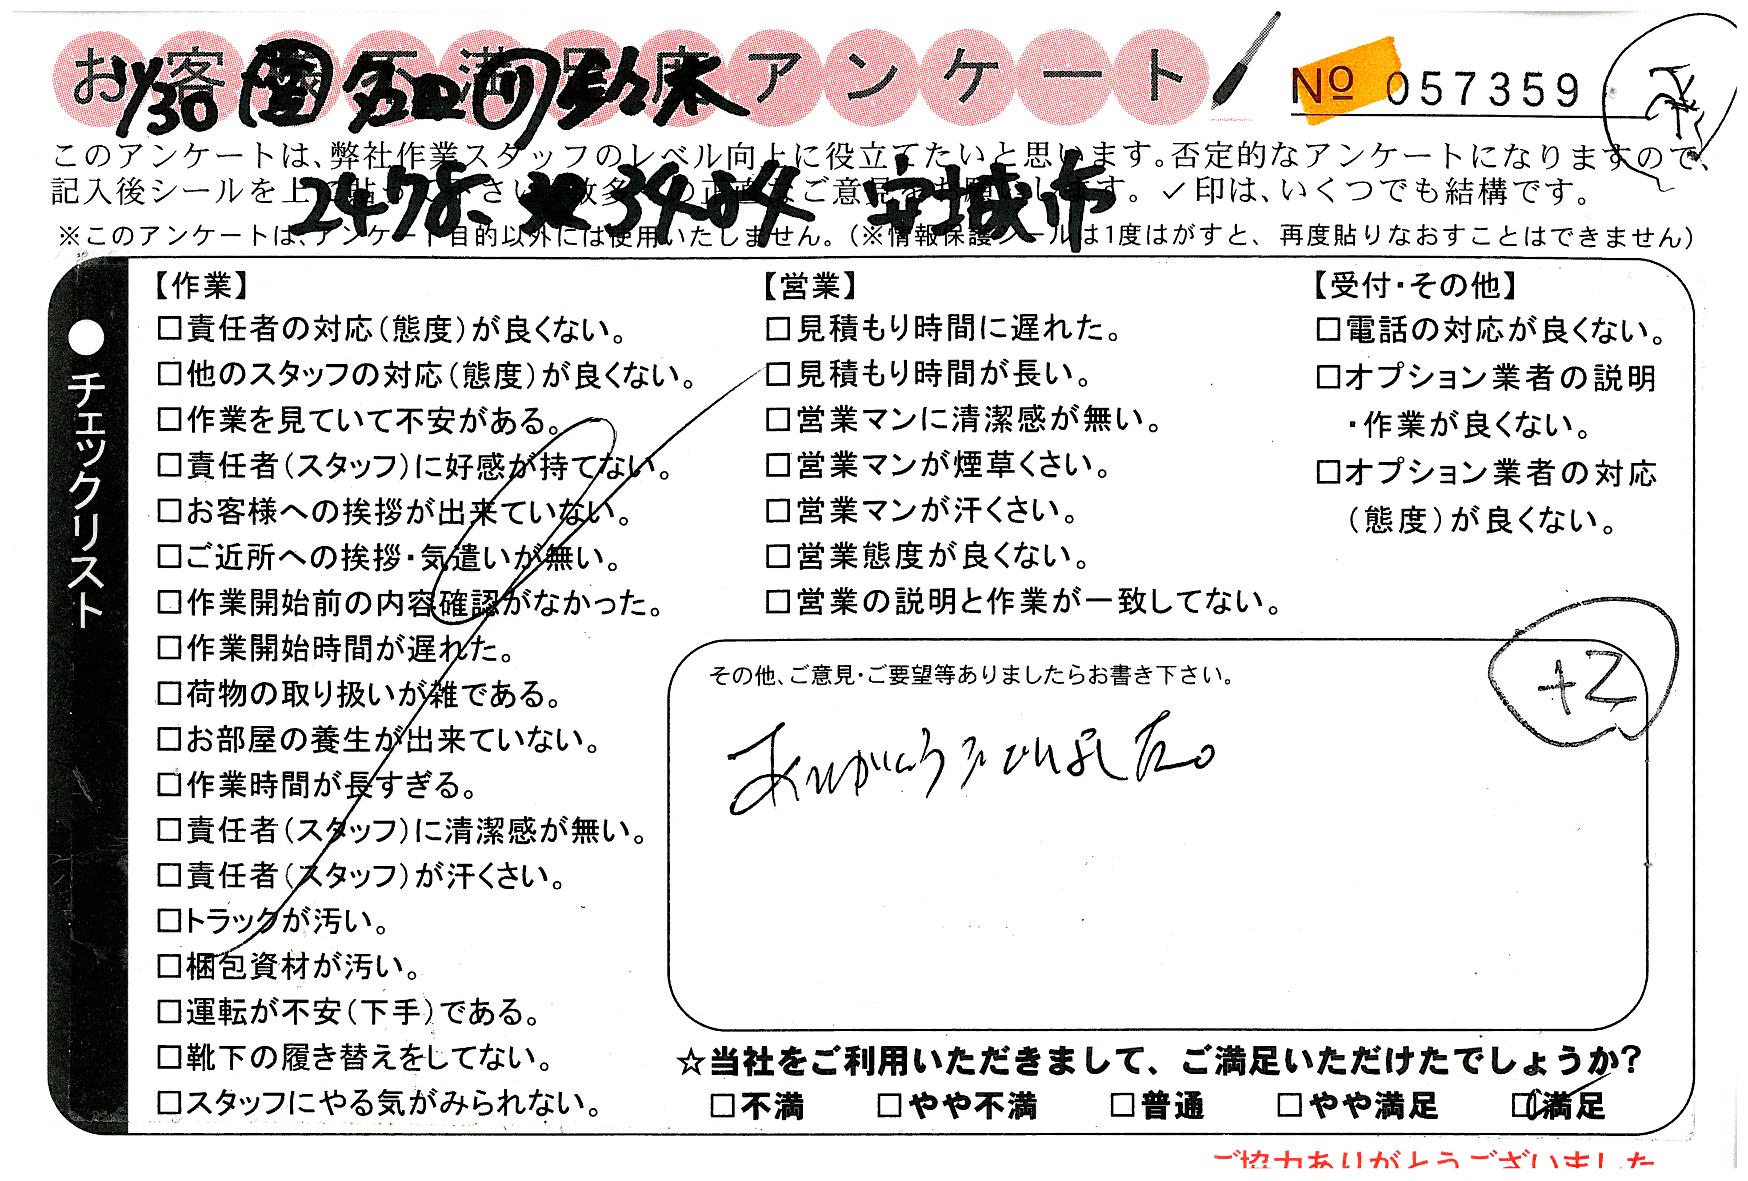 お客様不満足度アンケート
No 057359
11/30 鈴木
2478 3484 安城市
このアンケートは、弊社作業スタッフのレベル向上に役立てたいと思います。否定的なアンケートになりますので、
記入後シールを上に貼って下さい。数多くの正直なご意見をお願いします。✓印は、いくつでも結構です。
※このアンケートは、アンケート目的以外には使用いたしません。(※情報保護シールは1度はがすと、再度貼りなおすことはできません)
●チェックリスト
【作業】
□責任者の対応(態度)が良くない。
□他のスタッフの対応(態度)が良くない。
□作業を見ていて不安がある。
□責任者(スタッフ)に好感が持てない。
□お客様への挨拶が出来ていない。
□ご近所への挨拶・気遣いが無い。
□作業開始前の内容確認がなかった。
□作業開始時間が遅れた。
□荷物の取り扱いが雑である。
□お部屋の養生が出来ていない。
□作業時間が長すぎる。
□責任者(スタッフ)に清潔感が無い。
□責任者(スタッフ)が汗くさい。
□トラックが汚い。
□梱包資材が汚い。
□運転が不安(下手)である。
□靴下の履き替えをしてない。
□スタッフにやる気がみられない。
【営業】
□見積もり時間に遅れた。
□見積もり時間が長い。
□営業マンに清潔感が無い。
□営業マンが煙草くさい。
□営業マンが汗くさい。
□営業態度が良くない。
□営業の説明と作業が一致してない。
【受付・その他】
□電話の対応が良くない。
□オプション業者の説明
・作業が良くない。
□オプション業者の対応
(態度)が良くない。
その他、ご意見・ご要望等ありましたらお書き下さい。
+2
ありがとうございました。
☆当社をご利用いただきまして、ご満足いただけたでしょうか?
□不満 □やや不満 □普通 □やや満足 □満足
ご協力ありがとうございました